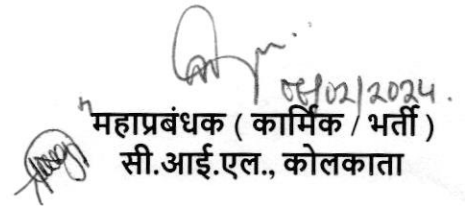 08/02/2024.
महाप्रबंधक ( कार्मिक / भर्ती )
सी.आई.एल., कोलकाता